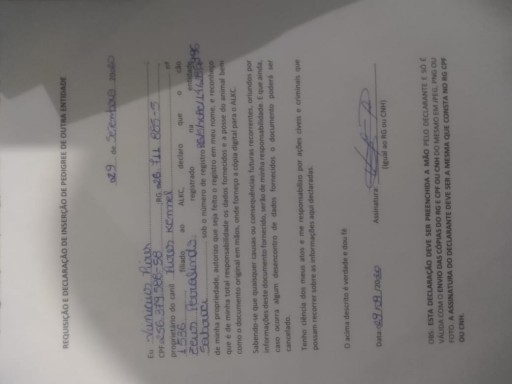 REQUISIÇÃO E DECLARAÇÃO DE INSERÇÃO DE PEDIGREE DE OUTRA ENTIDADE
29 de Setembro 2020
Eu Vinicius
CPF RG
proprietário do canil Kennel nº
1536 filiado ao ALKC, declaro que o cão
registrado na entidade
sob o número de registro
de minha propriedade, autorizo que seja feito o registro em meu nome, e reconheço
que é de minha total responsabilidade os dados fornecidos e a posse do animal bem
como o documento original em mãos, onde forneço a cópia digital para o ALKC.
Sabendo-se que quaisquer causas ou consequências futuras recorrentes, oriundos por
informações deste documento fornecido, serão de minha responsabilidade. E que ainda,
caso ocorra algum desencontro de dados fornecidos o documento poderá ser
cancelado.
Tenho ciência dos meus atos e me responsabilizo por ações cíveis e criminais que
possam recorrer sobre as informações aqui declaradas.
O acima descrito é verdade e dou fé
Data: 29/09/2020 Assinatura
(Igual ao RG ou CNH)
OBS: ESTA DECLARAÇÃO DEVE SER PREENCHIDA A MÃO PELO DECLARANTE E SÓ É
VÁLIDA COM O ENVIO DAS CÓPIAS DO RG E CPF OU CNH DO MESMO EM JPEG, PNG OU
FOTO. A ASSINATURA DO DECLARANTE DEVE SER A MESMA QUE CONSTA NO RG CPF
OU CNH.